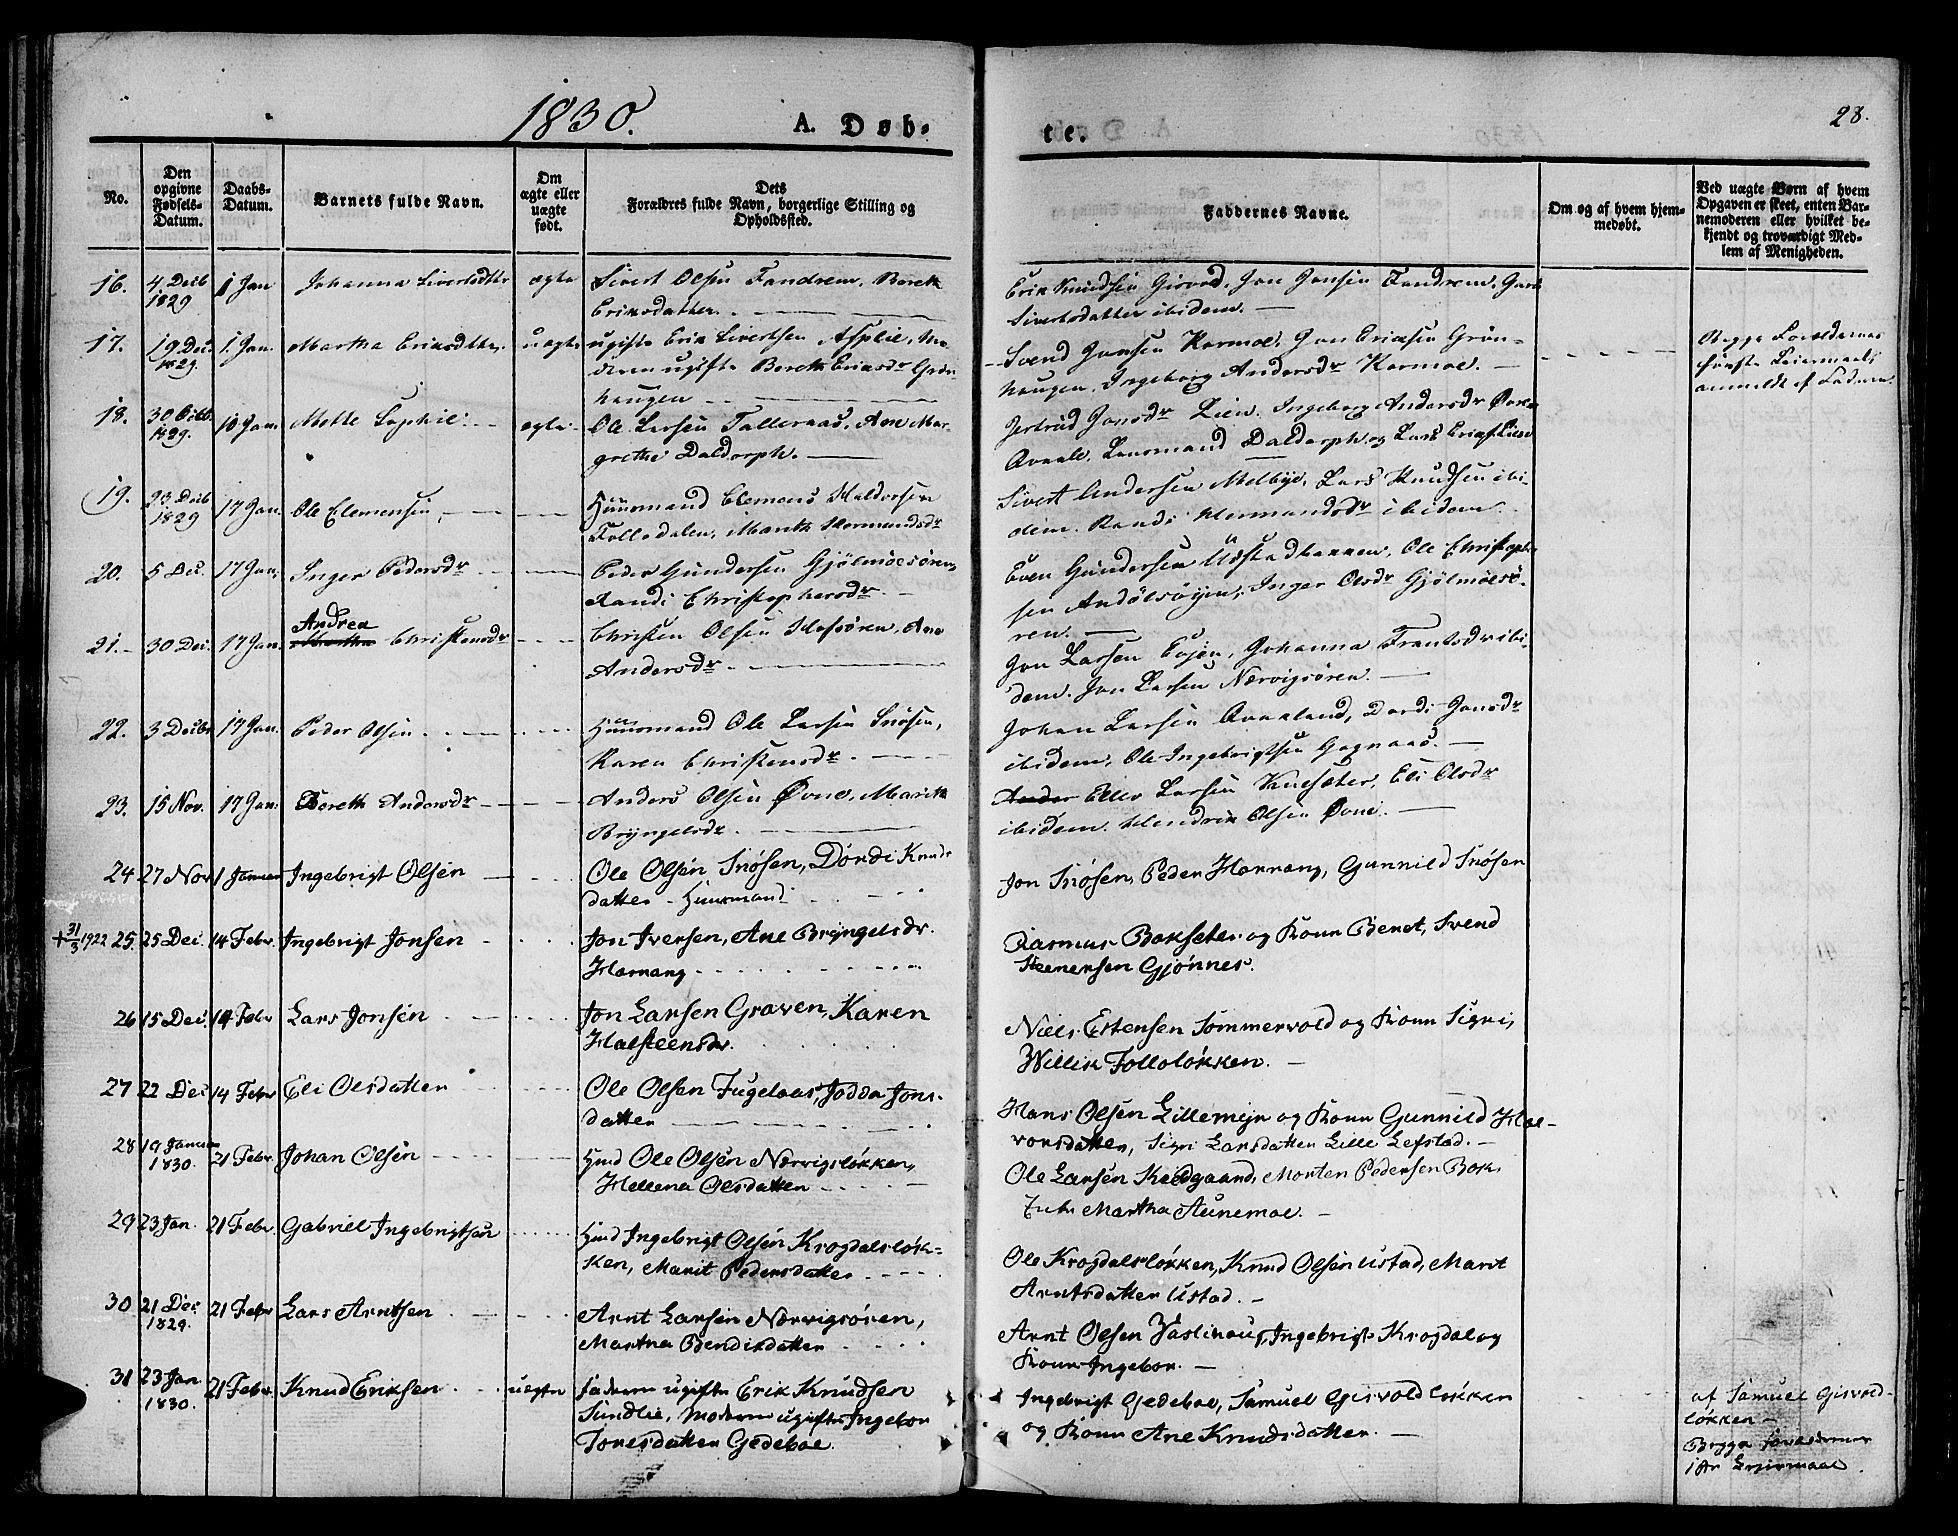 1830.
A. Døb-
te.
28.
No.
Den opgivne Fødsels-Datum.
Daabs-Datum.
Barnets fulde Navn.
Om ægte eller uægte født.
Dets Forældres fulde Navn, borgerlige Stilling og Opholdssted.
Faddernes Navne.
Om og af hvem hjem-medøbt.
Ved uægte Børn af hvem Opgaven er skeet, enten Bar-nemoderen eller hvilket be-kjendt og troværdigt Med-lem af Menigheden.
16. 4 Decb 1829 1 Jan Johanna Sivertsdttr ægte Sivert Olsen Fandrem, Bereth
Eriksdatter.
Erik Knudsen Gisvod, Jon Jonsen Fandrem, Guru
Sivertsdatter ibidem.
17. 19 Dec. 1829. 1 Jan. Martha Eriksdtter uægte ugifte Erik Sivertsen Asplie, Mo-
deren ugifte Bereth Eriksdr Grøn-
haugen
Svend Jonsen Karmoe, Jon Ericksen Grøn-
haugen, Ingeborg Andersdr Karmoe.
Begge Forældrenes
første Leiermaal
anmeldt af Faderen
18. 30 Octb. 1829. 10 Jan. Mette Sophie ægte Ole Larsen Talleraas, Ane Mar-
grethe Daldorph.
Jertrud Jonsdr Lien, Ingeborg Andersdr
Lensmand Daldorph og Lars
19. 23 Decb 1829 17 Jan. Ole Clemensen Huusmand Clemens Haldorsen
Follodalen, Mareth Hermandsdr
Sivert Andersen Melbye, Lars Knudsen ibi-
dem. Randi Hermandsdr ibidem
20. 5 Dec. 17 Jan. Inger Pedersdr Peder Gundersen Gjølmøesøren
Randi Christophersdr.
Even Gundersen Ustadbakken, Ole Christoph-
sen Andølsøyen, Inger Olsdr Gjølmøesø-
ren.
21. 30 Dec. 17 Jan. Andrea
Martha Christensdr Christen Olsen Hofsøren, Ane
Andersdr.
Jon Larsen Evjen, Johanna Frantsdr ibi-
dem. Jon Larsen Nærvigsøren.
22. 3 Decbr 17 Jan. Peder Olsen Huusmand Ole Larsen Snøsen,
Karen Christensdr.
Johan Larsen Avaaland, Dordi Jonsdr
ibidem, Ole Ingebrigtsen Gagnaas.
23. 15 Nov. 17 Jan. Bereth Andersdr Anders Olsen Øvne, Marith
Bryngelsdr.
Ander Eller Larsen Eli Olsdr
ibidem. Hendrik Olsen Øvne.
24 27 Nov 1 Januar Ingebrigt Olsen Ole Olsen Snøsen, Dordi Knuds
datter - Huusmand
Jon Snøsen, Peder Harnang, Gunnild Snøsen
+31/3 1922 25. 25 Dec. 14 Febr. Ingebrigt Jonsen Jon Iversen, Ane Bryngelsdr.
Harnang
Rasmus Bakseter og Konn Beret, Svend
Steenersen Gjønnes.
26 15 Dec. 14 Febr Lars Jonsen Jon Larsen Graven, Karen
Halsteensdr.
Niels Estensen Sommervold og Konn Sigri,
Willik Folloløkken.
27 22 Dec 14 Febr Eli Olsdatter Ole Olsen Fugelaas, Jodda Jons-
datter
Hans Olsen Lillemejn og Konn Gunnild Hal-
vorsdatter, Sigri Larsdatter Lille Lefstad.
28 19 Januar 1830. 21 Febr Johan Olsen Hmd Ole Olsen Nærvigsløkken,
Hellena Olsdatter
Ole Larsen Morten Pedersen Bak.
Enke Martha Aunemoe.
29 23 Jan. 21 Febr. Gabriel Ingebrigtsen Hmd Ingebrigt Olsen Krogdalsløk-
ken, Marit Pedersdatter
Ole Krogdalsløkken, Knud Olsen Ustad, Marit
Arntsdatter Ustad.
30 21 Dec 1829. 21 Febr Lars Arntsen Arnt Larsen Nærvigsøren,
Martha Bendisdatter
Arnt Olsen Vaslihaug, Ingebrigt Krogdal og
Konn Ingebor.
31 23 Jan 1830. 21 Febr. Knud Eriksen uægte faderen ugifte Erik Knudsen
Sundlie, moderen ugifte Ingebor
Jonesdatter Gedeboe
Ingebrigt Gedeboe, Samuel Gisvold løkken
og Konn Ane Knudsdatter.
af Samuel Gisvold-
løkken -
Begge forældrenes
1ste Leiermaal